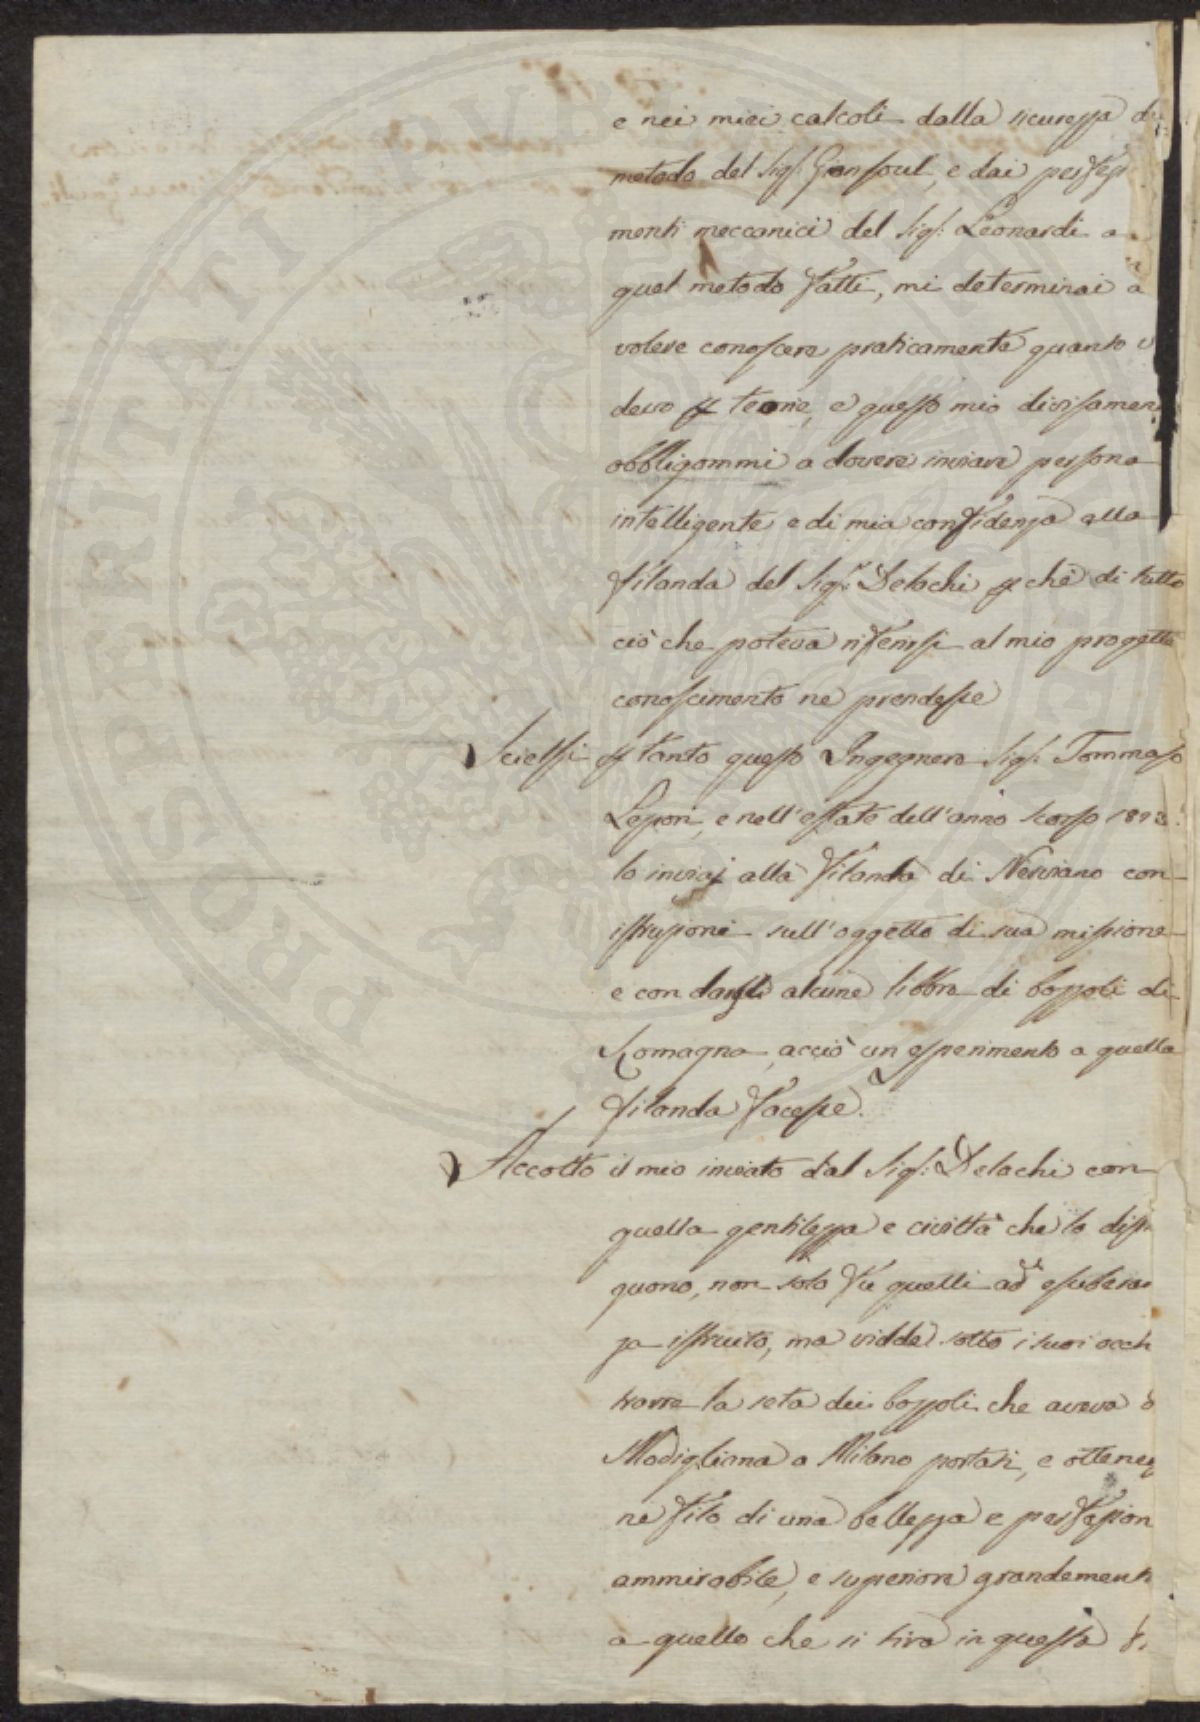 e nei miei calcoli dalla sicurezza d
metodo del Sig: Gensoul, e dai perfez
menti meccanici del Sig: Leonardi a
quel metodo fatti, mi determinai a
volere conoscere praticamente quanto
devo p teorie, e questo mio divisamen
obbligommi a dovere inviare persona
intelligente e di mia confidenza alla
filanda del Sig:r Delachi pchè di tutto
ciò che poteva riferirsi al mio progetto
conoscimento ne prendesse
Scielsi p tanto questo Ingegnere Sig: Tommaso
e nell'estate dell'anno scorso
lo inviai alla filanda di Nerviano con
istruzioni sull'oggetto di sua missione
e con dargli alcune libbre di bozzoli di
Romagna, acciò un esperimento a quella
filanda facesse.
Accolto il mio inviato dal Sig: Delachi con
quella gentilezza e civiltà che lo disti
guono, non solo fu quelli ad esubera
za istruito, ma vidde sotto i suoi occh
trarre la seta dei bozzoli che aveva d
Modigliana a Milano portati, e ottene
ne filo di una bellezza e perfezion
ammirabile, e superiore grandement
a quello che si tira in questa